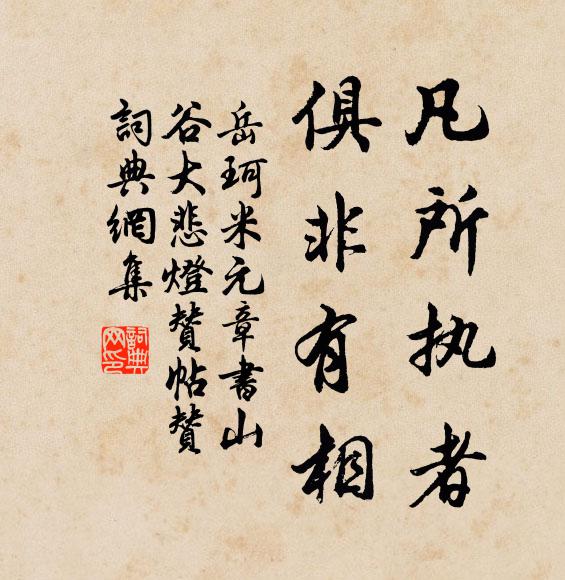 凡所执者
俱非有相
岳珂米元章书山
谷大悲燈贊帖贊
詞典網集
詞典网印